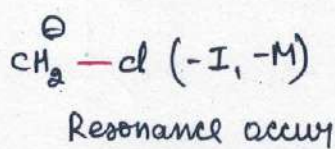 ⊖
CH₂ — Cl (-I, -M)
Resonance occur